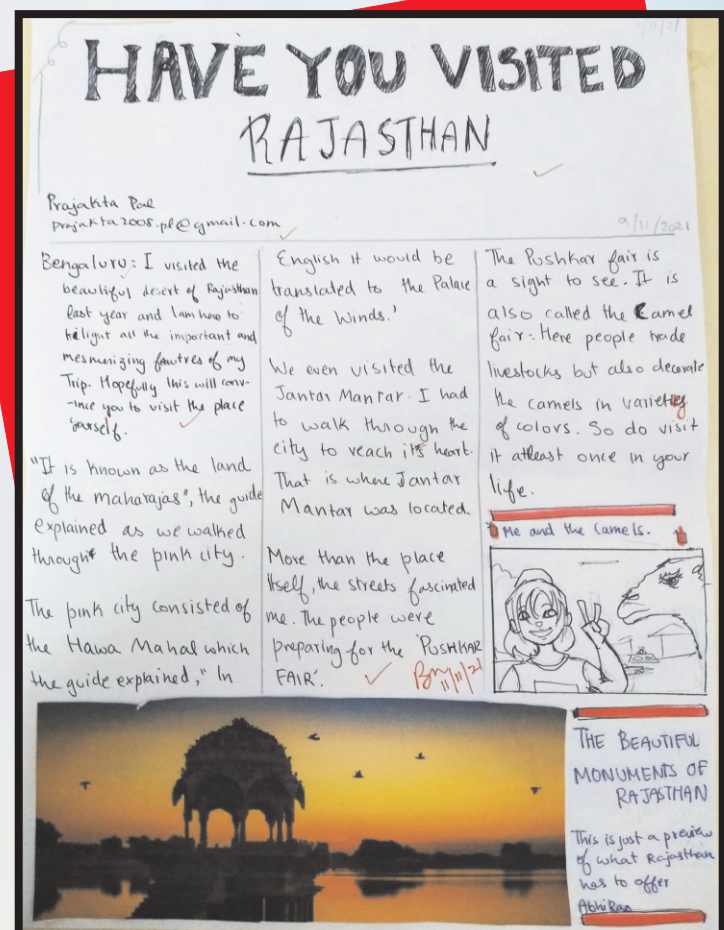 HAVE YOU VISITED
RAJASTHAN
Prajakta Pal
prajakta2008.pl@gmail.com
9/11/2021
Bengaluru: I visited the
beautiful desert of Rajasthan
last year and I am here to
hiligut all the important and
mesmerizing feautres of my
Trip. Hopefully this will conv-
-ince you to visit the place
yourself.
"It is known as the land
of the maharajas", the guide
explained as we walked
through the pink city.
The pink city consisted of
the Hawa Mahal which
the guide explained," In
English it would be
translated to the Palace
of the Winds.'
We even visited the
Jantar Mantar. I had
to walk through the
city to reach it's heart.
That is where Jantar
Mantar was located.
More than the place
itself, the streets fascinated
me. The people were
preparing for the 'PUSHKAR
FAIR'.
11/11/21
The Pushkar fair is
a sight to see. It is
also called the Camel
fair. Here people trade
livestocks but also decorate
the camels in variety
of colors. So do visit
it atleast once in your
life.
Me and the Camels.
THE BEAUTIFUL
MONUMENTS OF
RAJASTHAN
This is just a preview
of what Rajasthan
has to offer
Abhi Rao